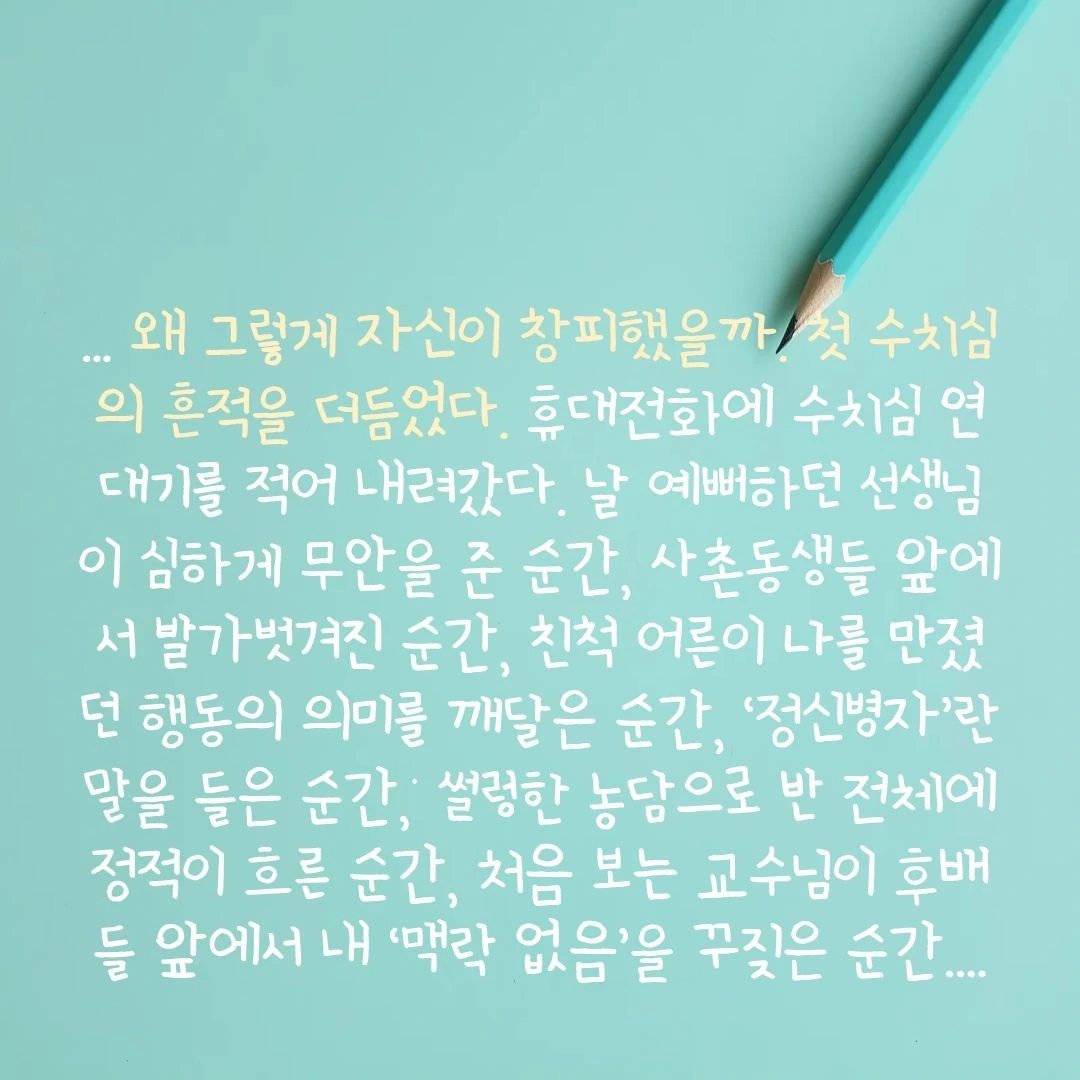 ... 왜 그렇게 자신이 창피했을까. 첫 수치심
의 흔적을 더듬었다. 휴대전화에 수치심 연
대기를 적어 내려갔다. 날 예뻐하던 선생님
이 심하게 무안을 준 순간, 사촌동생들 앞에
서 발가벗겨진 순간, 친척 어른이 나를 만졌
던 행동의 의미를 깨달은 순간, ‘정신병자’란
말을 들은 순간, 썰렁한 농담으로 반 전체에
정적이 흐른 순간, 처음 보는 교수님이 후배
들 앞에서 내 ‘맥락 없음’을 꾸짖은 순간....